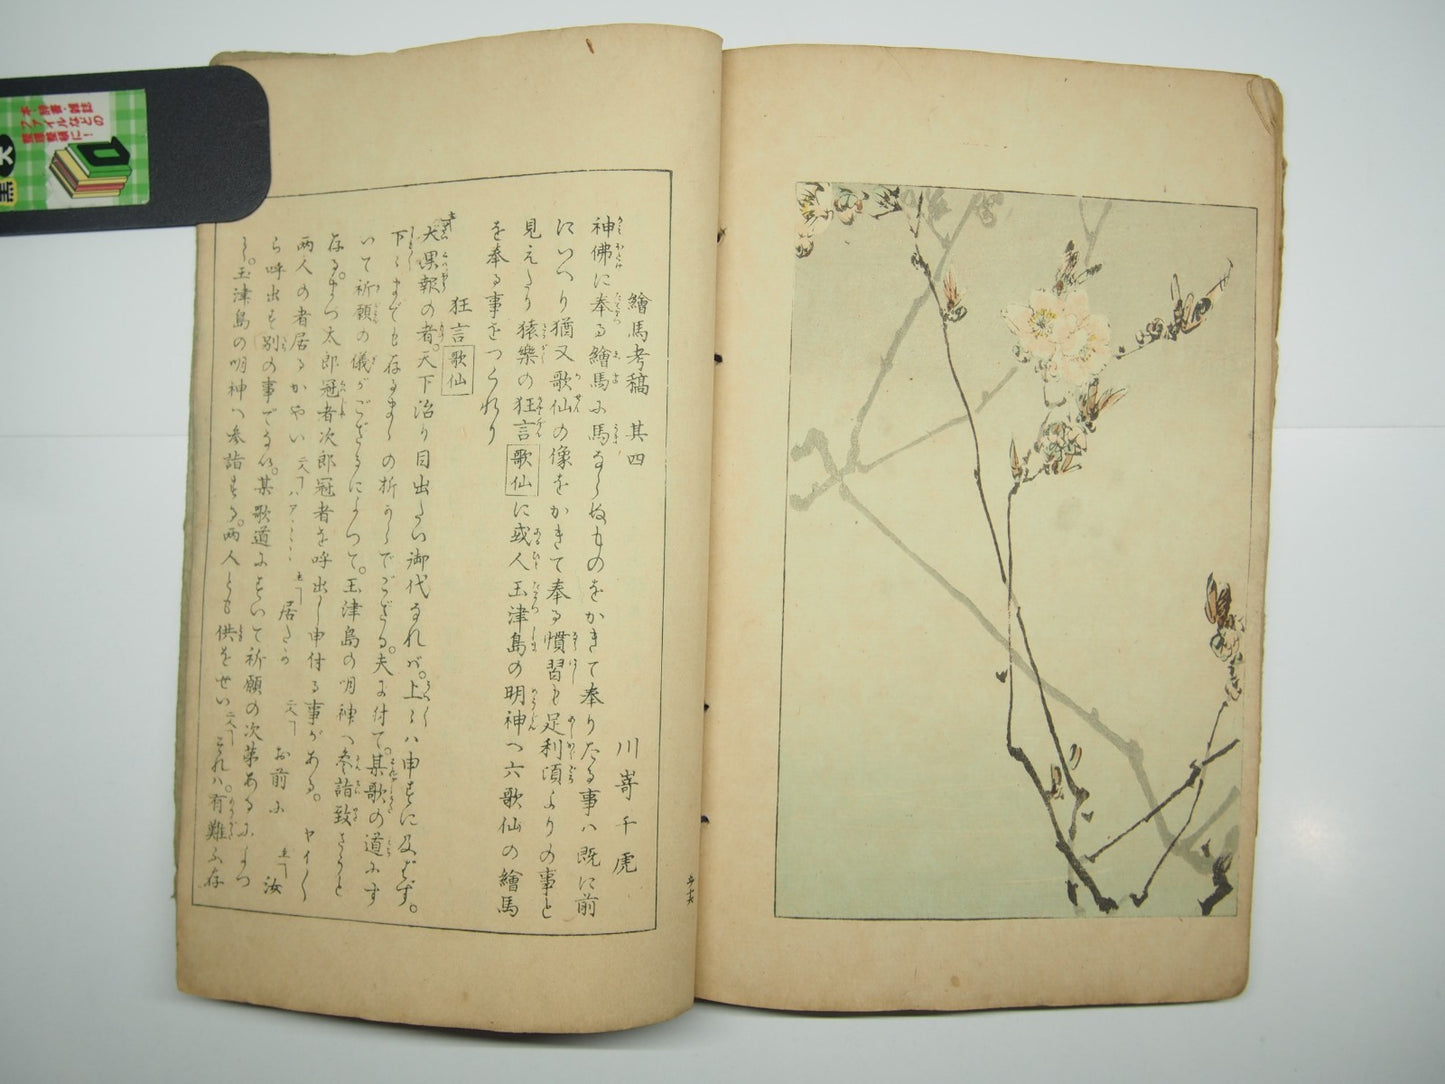 繪馬考稿 其四
川嵜千虎
神佛に奉る繪馬に馬ならぬものをかきて奉りたる事ハ既に前
にいへり猶又歌仙の像をかきて奉る慣習も足利頃よりの事と
見えたり猿樂の狂言歌仙に或人玉津島の明神へ六歌仙の繪馬
を奉る事をつくれり
狂言歌仙
大果報の者。天下治り目出たい御代なれバ。上々ハ申すに及ばず。
下々までも存るまゝの折からでござる。夫に付て。某歌の道にす
いて祈願の儀がござるによつて。玉津島の明神へ参詣致さうと
存る。まづ太郎冠者次郎冠者を呼出し申付る事がある。ヤイ〳〵
両人の者居るかやい 居たか お前に 汝
ら呼出す別の事でない。某歌道にすいて祈願の次第あるによつ
て。玉津島の明神へ参詣する。両人とも供をせい それハ。有難ふ存
本・辞書・雑誌
ファイルなどの
整理整頓に!
黒 大